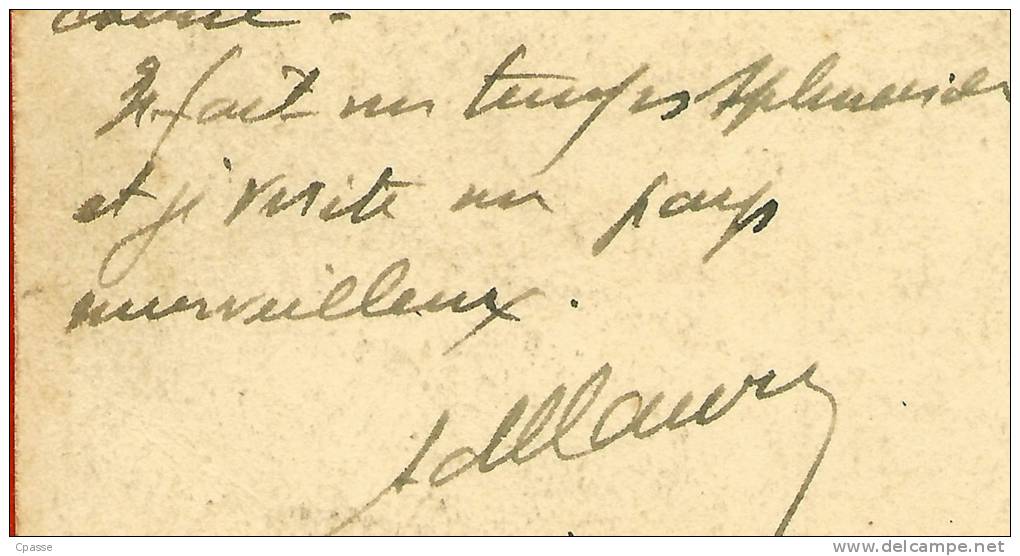 Il fait un temps splendide
et je visite un pays
merveilleux.
Cpasse
www.delcampe.net